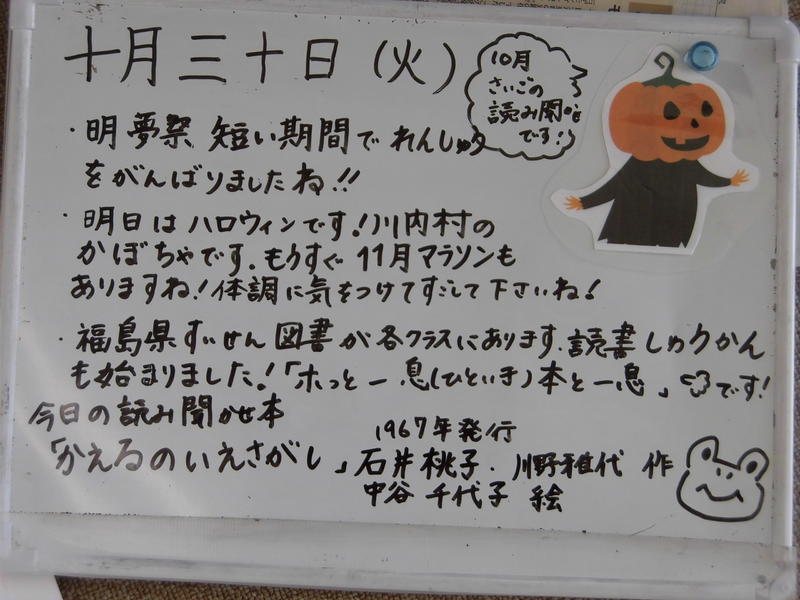 十月三十日(火)
10月
さいごの
読み聞かせ
です!
・明夢祭 短い期間でれんしゅう
をがんばりましたね!!
・明日はハロウィンです!川内村の
かぼちゃです。もうすぐ11月マラソンも
ありますね!体調に気をつけてすごして下さいね!
・福島県すいせん図書が各クラスにあります。読書しゅうかん
も始まりました!「ホっと一息(ひといき)本と一息」です!
今日の読み聞かせ本
1967年発行
「かえるのいえさがし」石井桃子・川野雅代 作
中谷千代子 絵